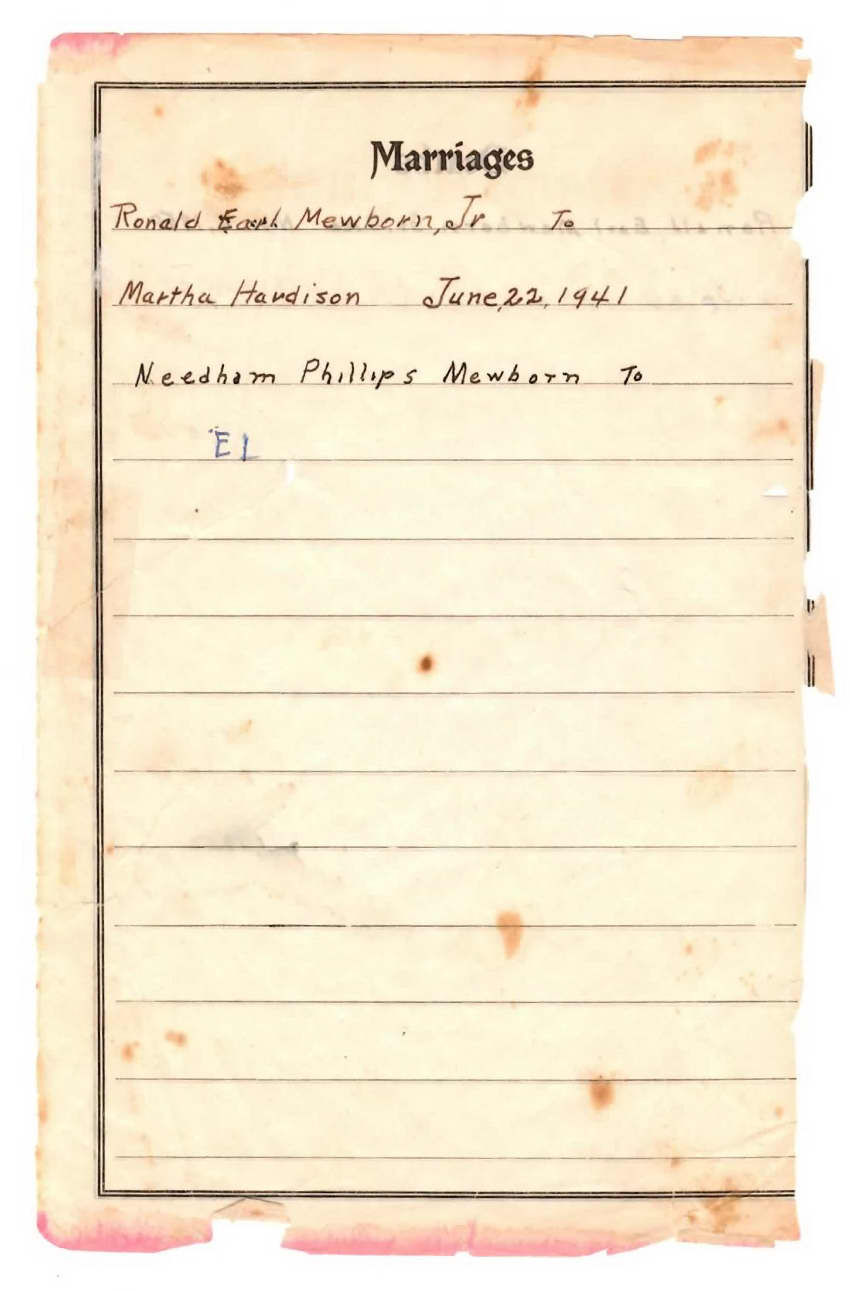 Marriages
Ronald Earl Mewborn, Jr To
Martha Hardison June, 22, 1941
Needham Phillips Mewborn To
EL